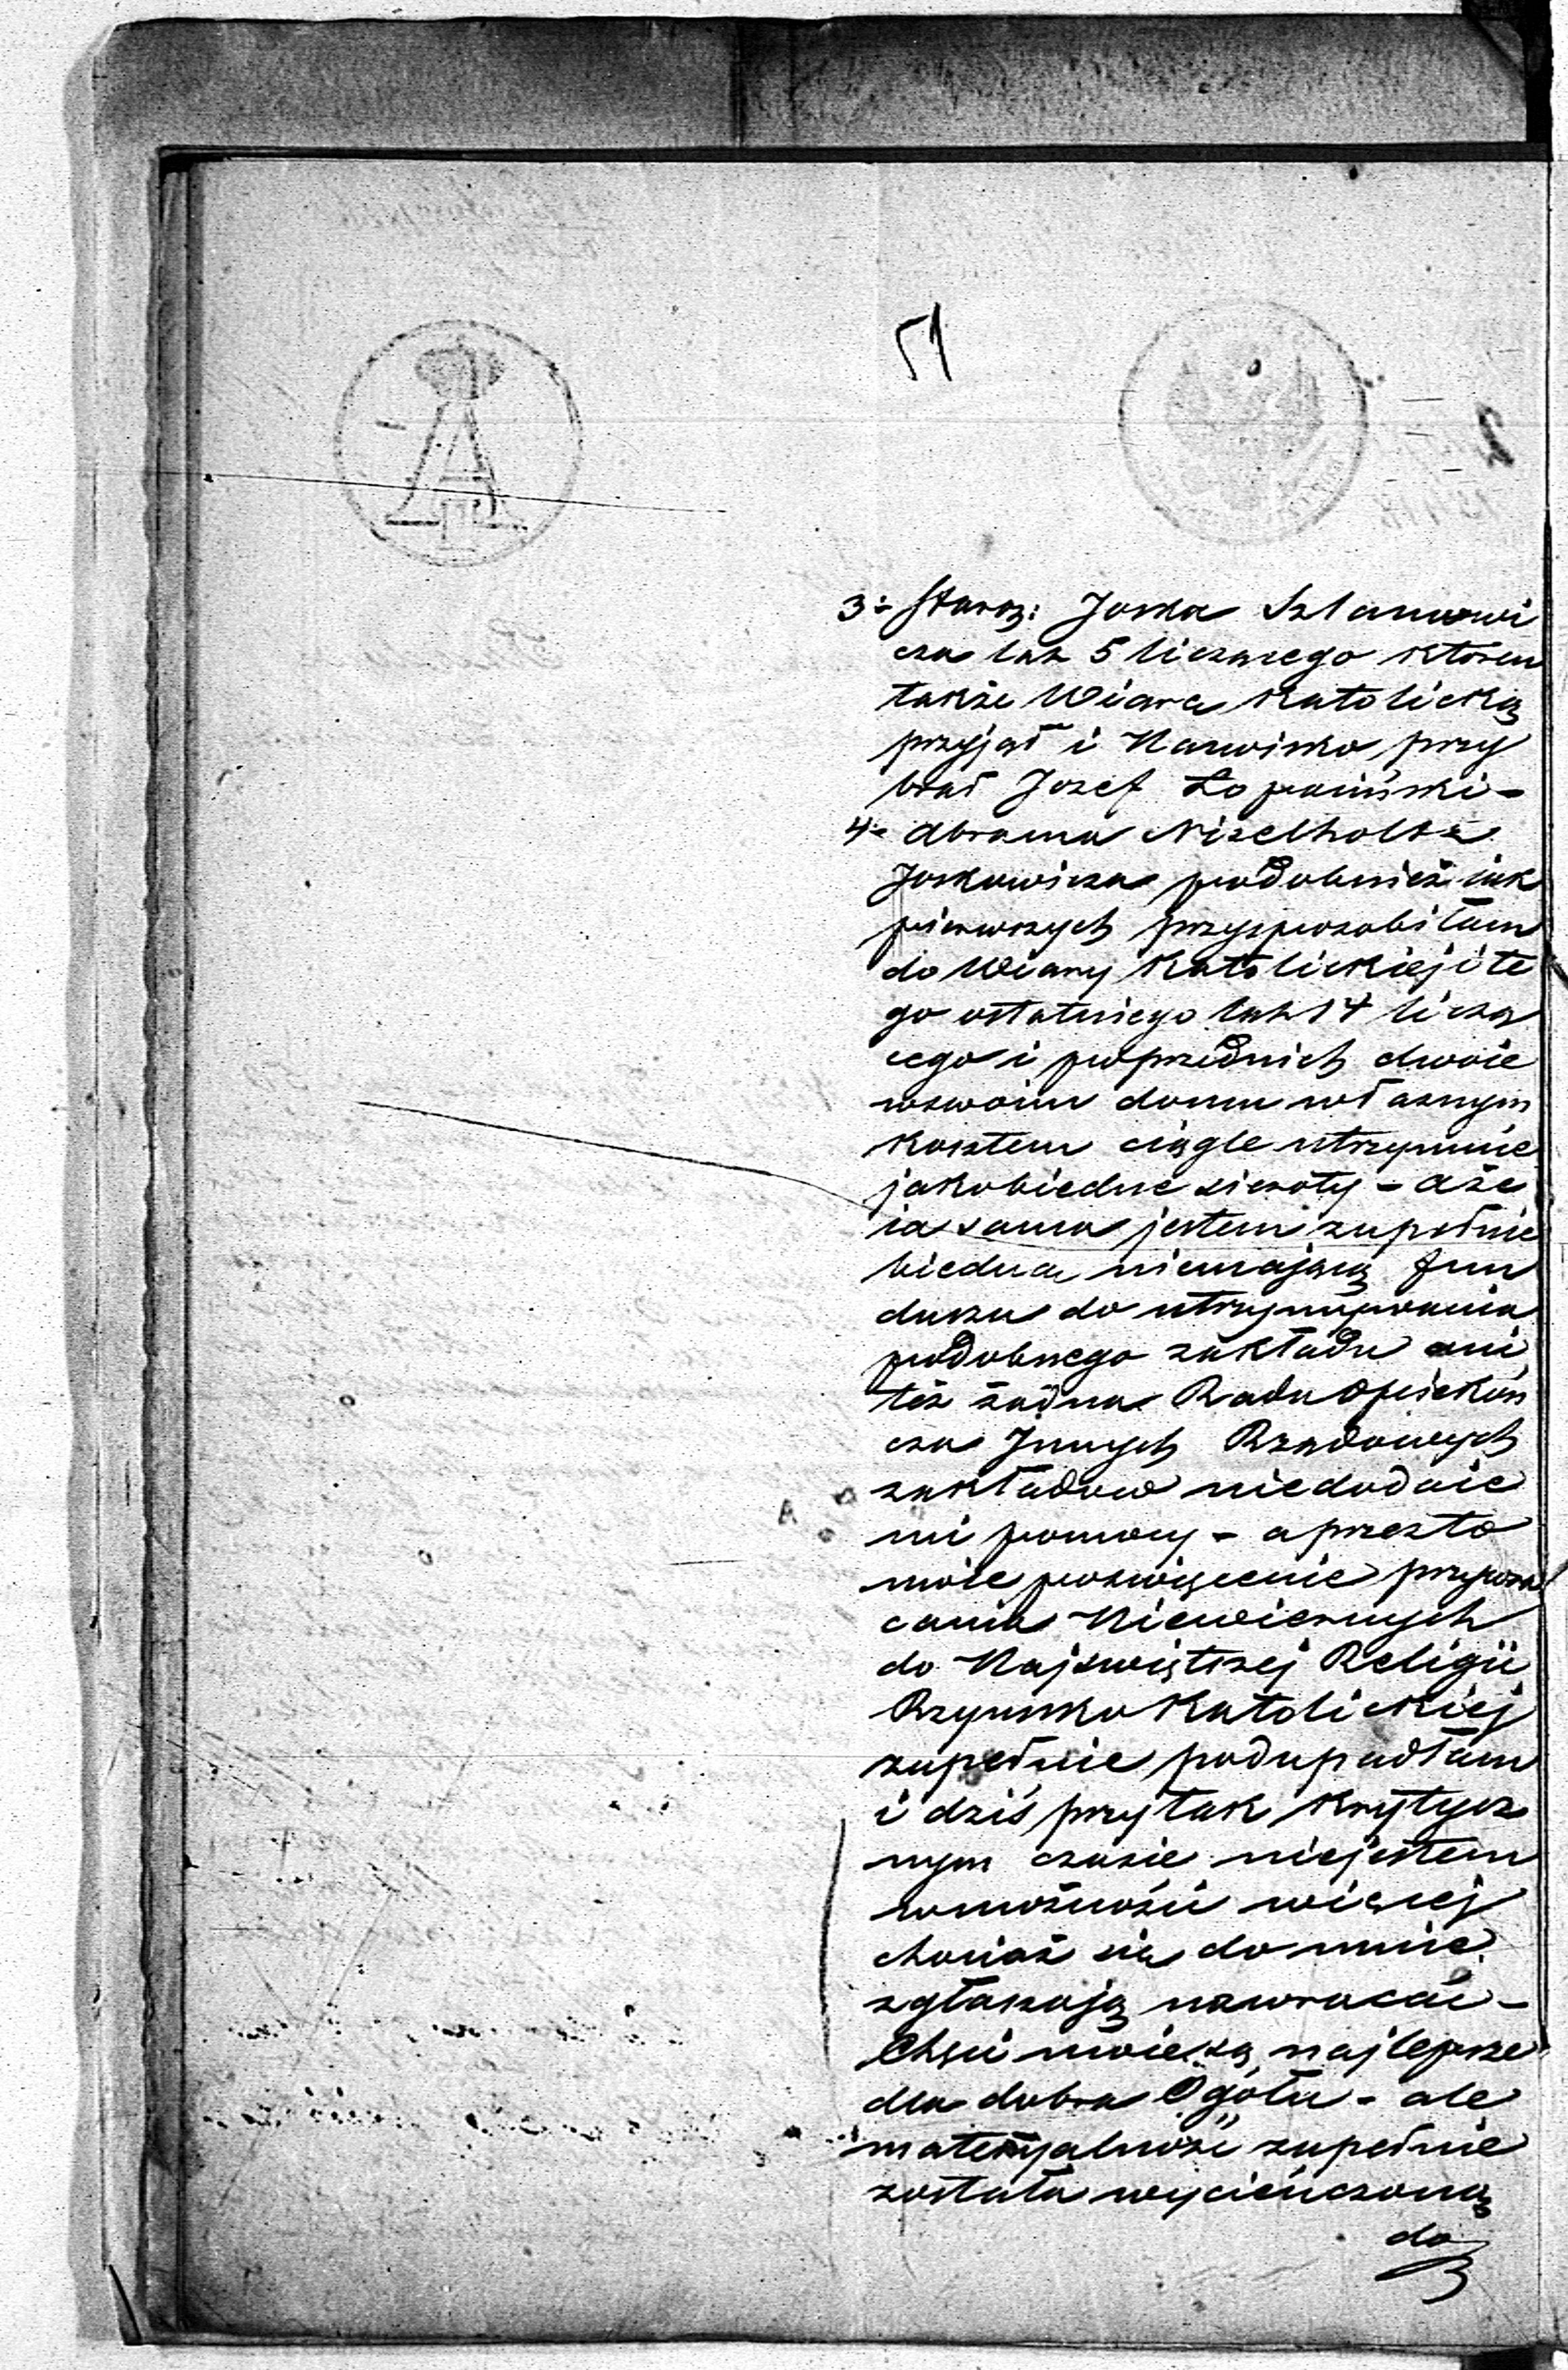 51
2
3: Staroz: Joska Szlamowi
cza lat 5 liczącego ktoren
także Wiarę Katolicką
przyjął i Nazwisko przy
brał Jozef Łopaciński -
4: Abrama Nizelholtz
Joskowicza podobnież jak
pierwszych przysposobiłam
do Wiary Katolickiej i te
go ostatniego lat 14 liczą
cego i poprzednich dwoie
wswoim domu własnym
Kosztem ciągle utrzymuie
jako biedne sieroty - aże
ia sama jestem zupełnie
biedną niemającą fun
duszu do utrzymywania
podobnego zakładu ani
też żadna Rada Opiekuń
cza Innych Rządowych
zakładow niedodaie
mi pomocy - a przezto
moie poswięcenie przywra
cania Niewiernych
do Najswiętszej Religii
Rzymsko Katolickiej
zupełnie podupadłam
i dziś przy tak Krytycz
nym czasie niejestem
wmożności więcej
chociaż się do mnie
zgłaszają nawracać -
Chęci moie są najlepsze
dla dobra Ogółu - ale
materyalność zupełnie
została wycieńczoną
do